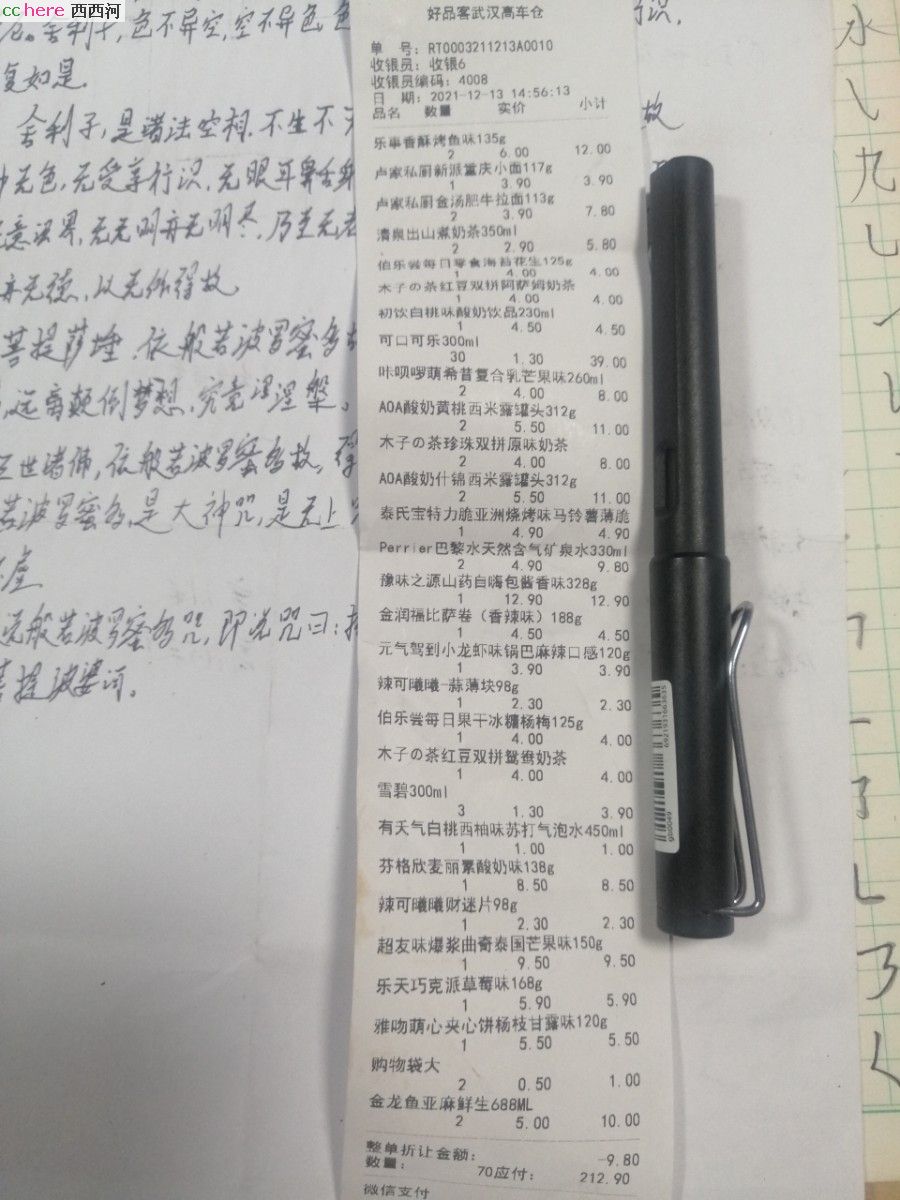 cchere 西西河
好品客武汉高车仓
单 号: RT0003211213A0010
收银员: 收银6
收银员编码: 4008
日 期: 2021-12-13 14:56:13
品名 数量 实价 小计
乐事香酥烤鱼味135g
2 6.00 12.00
卢家私厨新派重庆小面117g
1 3.90 3.90
卢家私厨金汤肥牛拉面113g
2 3.90 7.80
清泉出山煮奶茶350ml
2 2.90 5.80
伯乐尝每日零食海苔花生125g
1 4.00 4.00
木子の茶红豆双拼阿萨姆奶茶
1 4.00 4.00
初饮白桃味酸奶饮品230ml
1 4.50 4.50
可口可乐300ml
30 1.30 39.00
咔呗啰萌希昔复合乳芒果味260ml
2 4.00 8.00
AOA酸奶黄桃西米露罐头312g
2 5.50 11.00
木子の茶珍珠双拼原味奶茶
2 4.00 8.00
AOA酸奶什锦西米露罐头312g
2 5.50 11.00
泰氏宝特力脆亚洲烧烤味马铃薯薄脆
1 4.90 4.90
Perrier巴黎水天然含气矿泉水330ml
2 4.90 9.80
豫味之源山药自嗨包酱香味328g
1 12.90 12.90
金润福比萨卷（香辣味）188g
1 4.50 4.50
元气驾到小龙虾味锅巴麻辣口感120g
1 3.90 3.90
辣可曦曦-蒜薄块98g
1 2.30 2.30
伯乐尝每日果干冰糖杨梅125g
1 4.00 4.00
木子の茶红豆双拼鸳鸯奶茶
1 4.00 4.00
雪碧300ml
3 1.30 3.90
有天气白桃西柚味苏打气泡水450ml
1 1.00 1.00
芬格欣麦丽素酸奶味138g
1 8.50 8.50
辣可曦曦财迷片98g
1 2.30 2.30
超友味爆浆曲奇泰国芒果味150g
1 9.50 9.50
乐天巧克派草莓味168g
1 5.90 5.90
雅吻萌心夹心饼杨枝甘露味120g
1 5.50 5.50
购物袋大
2 0.50 1.00
金龙鱼亚麻鲜生688ML
2 5.00 10.00
整单折让金额: -9.80
数量: 70应付: 212.90
微信支付
舍利子,色不异空,空不异色,色
复如是.
舍利子,是诸法空相,不生不
无色,无受享行识,无眼耳鼻舌身
意识界,无无明亦无明尽,乃至无老
亦无德,以无所得故
菩提萨埵,依般若波罗蜜多
远离颠倒梦想,究竟涅槃.
三世诸佛,依般若波罗蜜多故,得
若波罗蜜多,是大神咒,是无上
虚
说般若波罗蜜多咒,即说咒曰:揭
菩提娑婆诃.
识,
故
水
九
6921931663635